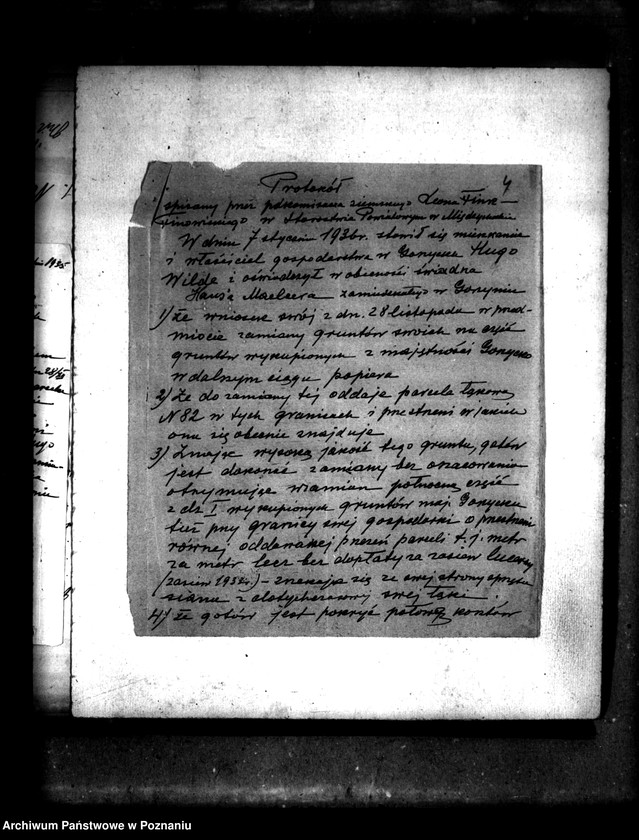 4
Protokół
spisany przez podkomisarza ziemskiego Leona Fink-
sztawickiego w Starostwie Powiatowym w Międzychodzie
W dniu 7 stycznia 1936 r. stawił się mieszkaniec
i właściciel gospodarstwa w Gorzycku Hugo
Wilde i oświadczył w obecności świadka
Hansa zamieszkałego w Gorzyniu
1) Że wniosek swój z dn. 28 listopada w przed-
miocie zamiany gruntów swoich na część
gruntów wykupionych z majętności Gorzycko
w dalszym ciągu popiera
2) Że do zamiany tej oddaje parcelę łąkową
N 82 w tych granicach i przestrzeni w jakich
ona się obecnie znajduje
3) Znając wysoką jakość tego gruntu, gotów
jest dokonać zamiany bez oszacowania
otrzymując wzamian północną część
z dz I wykupionych gruntów maj. Gorzycko
tuż przy granicy swej gospodarki o przestrzeni
równej oddawanej przezeń parceli t.j. metr
za metr lecz bez dopłaty za zasiew lucerny
(zasiew 1932 r.) – zrzekając się ze swej strony sprzętu
siana z dotychczasowej swej łąki.
4) że gotów jest pokryć połowę kosztów
Archiwum Państwowe w Poznaniu